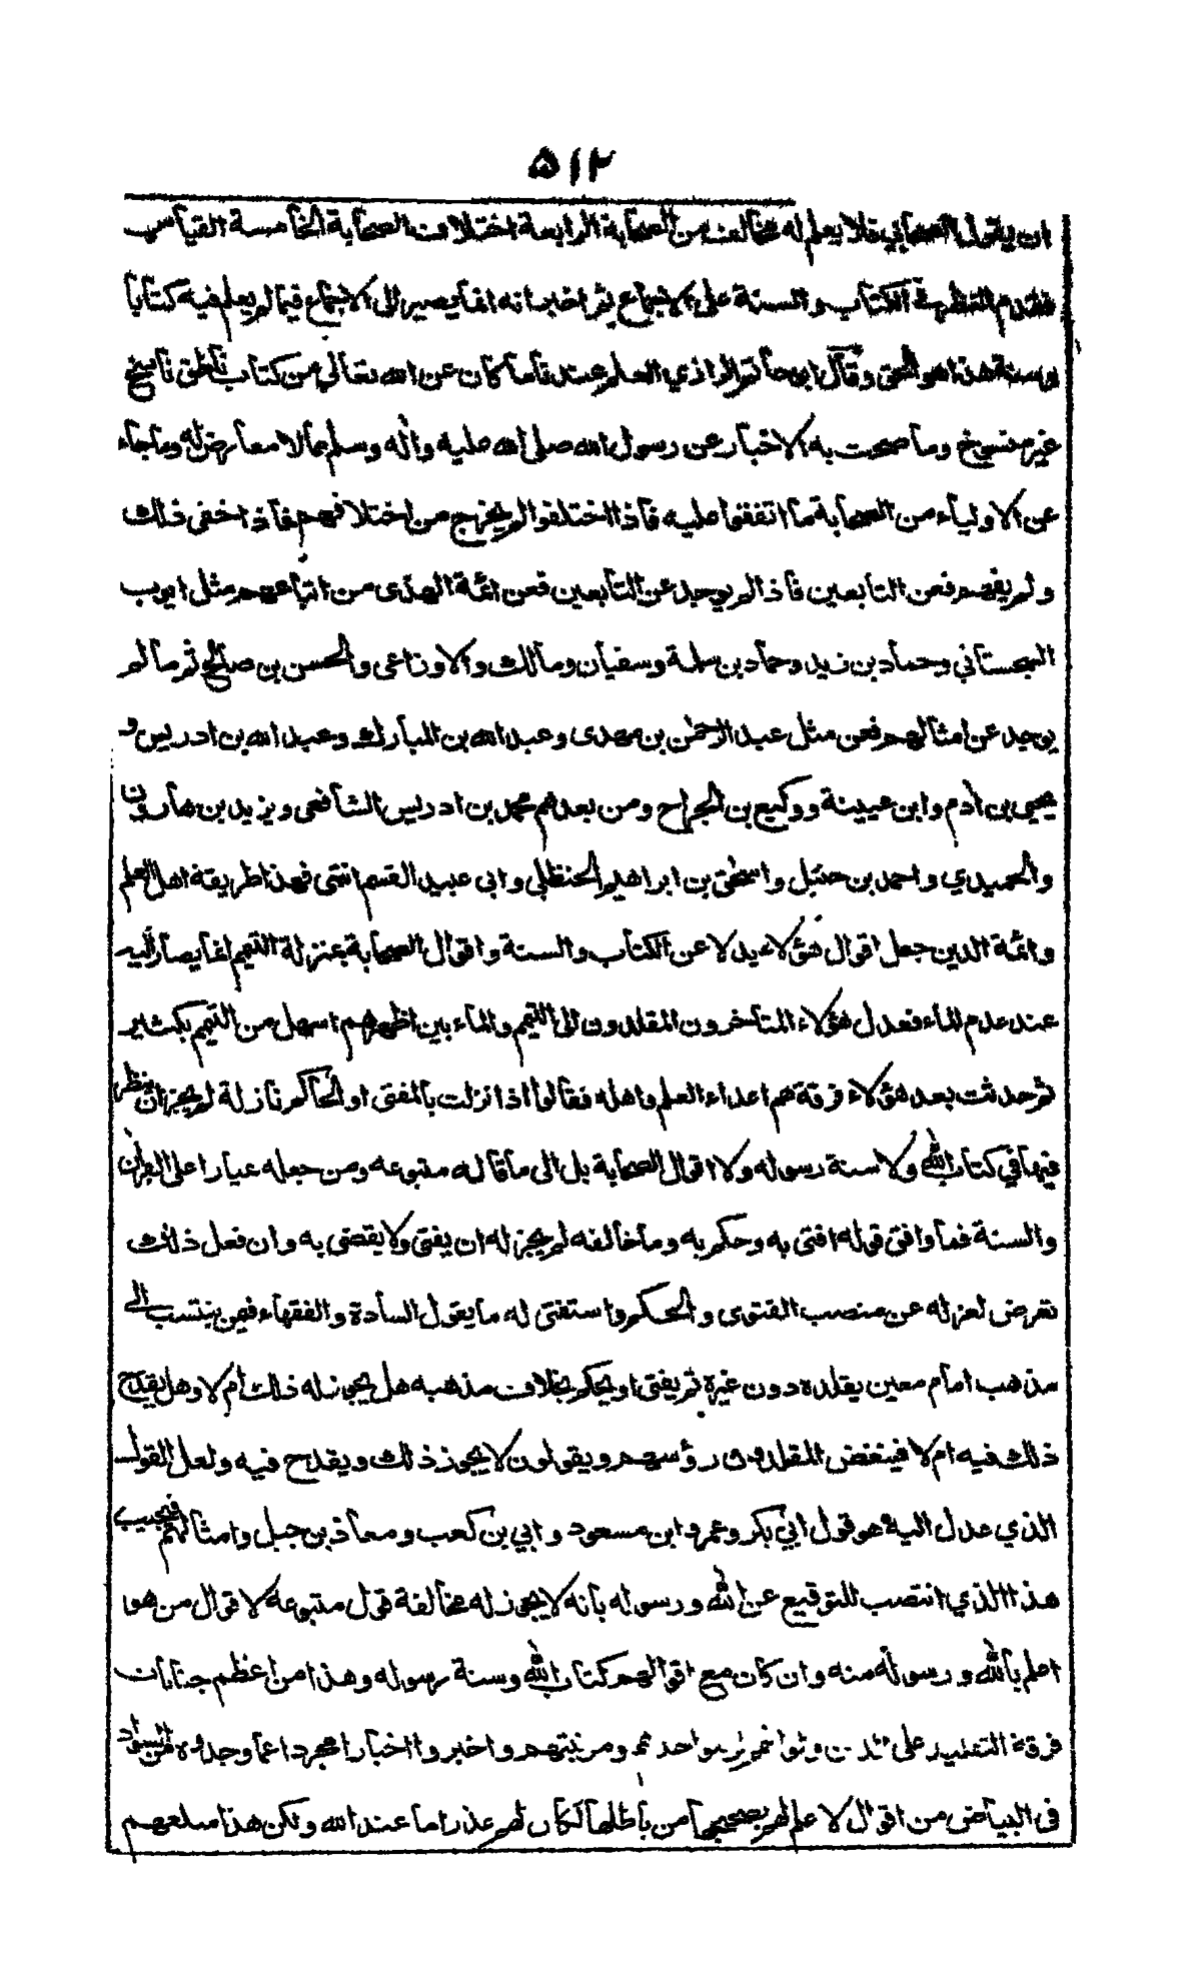 ۵۱۲
ان يقول الصحابي فلا يعلم له مخالف من الصحابة الرابعة اختلاف الصحابة الخامسة القياس
فقدم النظر في الكتاب والسنة على الاجماع ثم اخبر انه انما يصير الى الاجماع فيما لم يعلم فيه كتابا
وسنة هذا هو الحق وقال ابو حاتم الرازي العلم عندنا ما كان عن الله تعالى من كتاب ناطق ناسخ
غير منسوخ وما صحت به الاخبار عن رسول الله صلى الله عليه واله وسلم مما لا معارض له وما جاء
عن الاولياء من الصحابة ما اتفقوا عليه فاذا اختلفوا لم يخرج من اختلافهم فاذا خفى ذلك
ولم يفهم فعن التابعين فاذا لم يوجد عن التابعين فعن ائمة الهدى من اتباعهم مثل ايوب
السجستاني وحماد بن زيد وحماد بن سلمة وسفيان ومالك والاوزاعى والحسن بن صالح ثم ما لم
يوجد عن امثالهم فعن مثل عبد الرحمن بن مهدى وعبد الله بن المبارك وعبد الله بن ادريس و
يحيى بن ادم وابن عيينة ووكيع بن الجراح ومن بعدهم محمد بن ادريس الشافعى ويزيد بن هارون
والحميدي واحمد بن حنبل واسحق بن ابراهيم الحنظلي وابى عبيد القسم انتهى فهذا طريقة اهل العلم
وائمة الدين جعل اقوال هؤلاء بدلا عن الكتاب والسنة واقوال الصحابة بمنزلة التيمم انما يصار اليه
عند عدم الماء فعدل هؤلاء المتأخرون المقلدون الى التيمم والماء بين اظهرهم اسهل من التيمم بكثير
ثم حدثت بعد هؤلاء فرقة هم اعداء العلم واهله فقالوا اذا نزلت بالمفتى او الحاكم نازلة لم يجز ان ينظر
فيها في كتاب الله ولا سنة رسوله ولا اقوال الصحابة بل الى ما قاله متبوعه ومن جعله عيارا على القران
والسنة فما وافق قوله افتى به وحكم به وما خالفه لم يجز له ان يفتى ولا يقضى به وان فعل ذلك
تعرض لعزله عن منصب الفتوى والحكم واستفتى له ما يقول السادة والفقهاء فيمن ينتسب الى
مذهب امام معين يقلده دون غيره ثم يفتى او يحكم بخلاف مذهبه هل يجوز له ذلك أم لا وهل يقدح
ذلك فيه ام لا فينغض المقلدون رؤسهم ويقولون لا يجوز ذلك ويقدح فيه ولعل القول
الذي عدل اليه هو قول ابي بكر وعمر وابن مسعود وابي بن كعب ومعاذ بن جبل وامثالهم فيجيب
هذا الذي انتصب للتوقيع عن الله ورسوله بانه لا يجوز له مخالفة قول متبوعه لاقوال من هو
اعلم بالله ورسوله منه وان كان مع اقوالهم كتاب الله وسنة رسوله وهذا من اعظم جنايات
فرقة التقليد على الدين ولو انهم لزموا حدهم ومرتبتهم واخبروا اخبارا مجردا عما وجدوه من السواد
فى البياض من اقوال لا علم لهم بصحيحها من باطلها لكان لهم عذر اما عند الله ولكن هذا مبلغهم